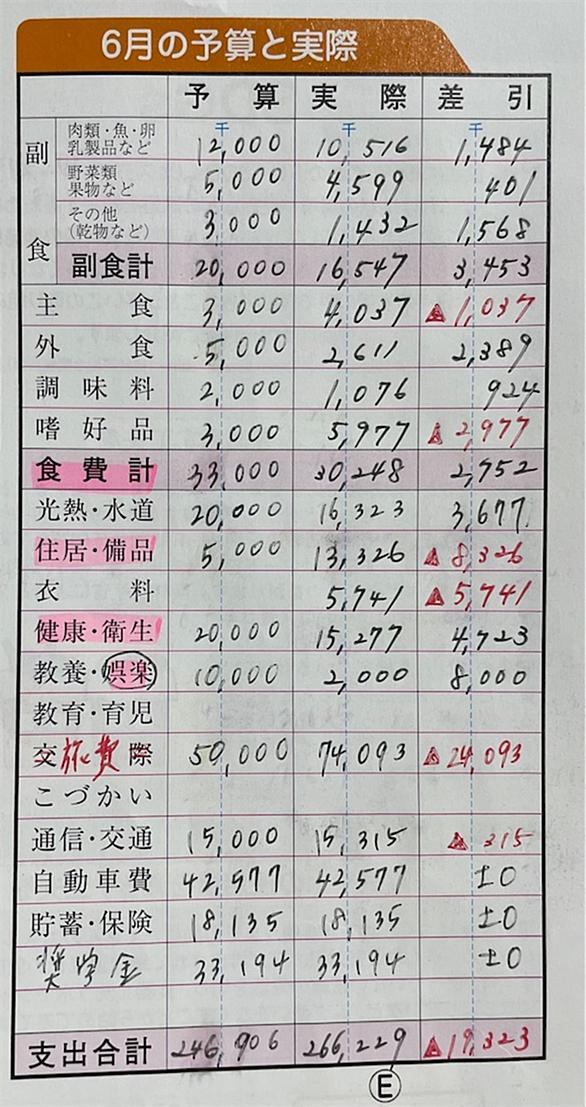 6月の予算と実際
予算 実際 差引
千 千 千
副食
肉類・魚・卵
乳製品など 12,000 10,516 1,484
野菜類
果物など 5,000 4,599 401
その他
(乾物など) 3,000 1,432 1,568
副食計 20,000 16,547 3,453
主食 3,000 4,037 ▲1,037
外食 5,000 2,611 2,389
調味料 2,000 1,076 924
嗜好品 3,000 5,977 ▲2,977
食費計 33,000 30,248 2,752
光熱・水道 20,000 16,323 3,677
住居・備品 5,000 13,326 ▲8,326
衣料 5,741 ▲5,741
健康・衛生 20,000 15,277 4,723
教養・娯楽 10,000 2,000 8,000
教育・育児
交旅費際 50,000 74,093 ▲24,093
こづかい
通信・交通 15,000 15,315 ▲315
自動車費 42,577 42,577 ±0
貯蓄・保険 18,135 18,135 ±0
奨学金 33,194 33,194 ±0
支出合計 246,906 266,229 ▲19,323
E